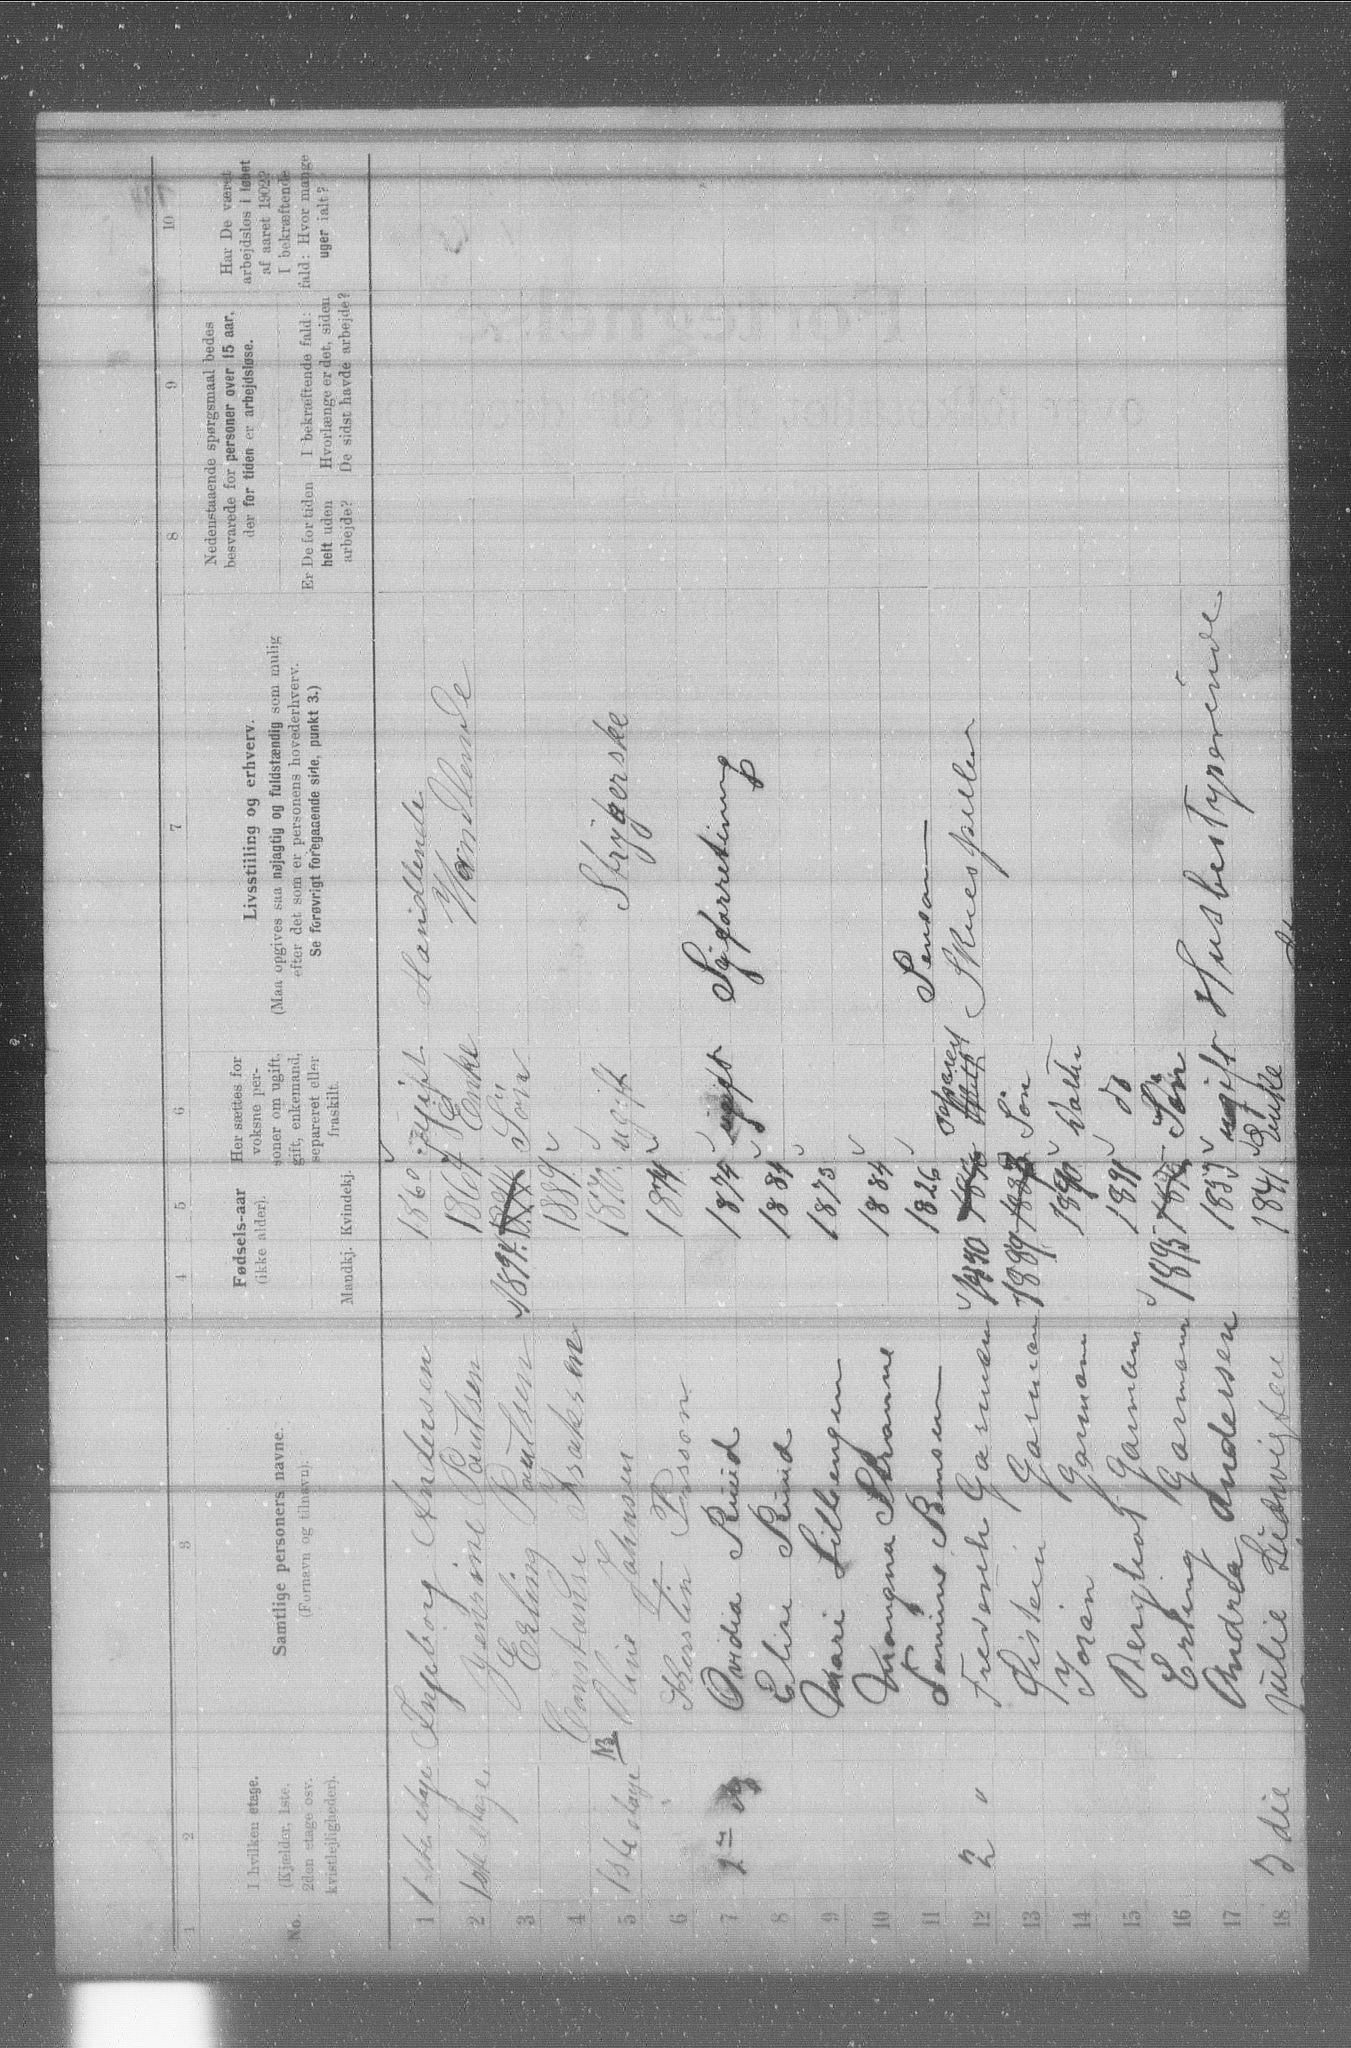 1 2 3 4 5 6 7 8 9 10
No.
I hvilken etage.
(Kjælder, 1ste.
2den etage osv.
kvistlejligheder).
Samtlige personers navne.
(Fornavn og tilnavn).
Fødsels-aar
(ikke alder).
Mandkj. Kvindekj.
Her sættes for
voksne per-
soner om ugift,
gift, enkemand,
separeret eller
fraskilt.
Livsstilling og erhverv.
(Maa opgives saa nøjagtig og fuldstændig som mulig
efter det som er personens hovederhverv.
Se forøvrigt foregaaende side, punkt 3.)
Nedenstaaende spørgsmaal bedes
besvarede for personer over 15 aar,
der for tiden er arbejdsløse.
Er De for tiden
helt uden
arbejde?
I bekræftende fald:
Hvorlænge er det, siden
De sidst havde arbejde?
Har De været
arbejdsløs i løbet
af aaret 1902?
I bekræftende
fald: Hvor mange
uger ialt?
1 1ste etage Ingeborg Andersen 1860 ugift Handlende
2 1ste etage Jensine Paulsen 1864 Enke Handlende
3 Erling Paulsen 1894 Søn
4 Constanse Isaksen 1889
5 1ste etage NB Aline Johnsen 187 ugift Strygerske
6 Kerstin Persson 1874
7 2 Ovidia Ruud 1874 ugift
8 Elise Ruud 1884
9 Mari Lilloengen 1873
10 Magna Stranne 1884
11 Namine Bensen 1826 Pension
12 2 " Frederik Garman Skuespiller
13 Øistein Garman 1889 Søn
14 Garmann 1890 Datter
15 Bergljot Garmann 1891 do
16 Erling Garmann 1895 Søn
17 Andrea Andersen 1833 ugift Husbestyrerinde
18 3die Julie Ludvigsen 1841 Enke